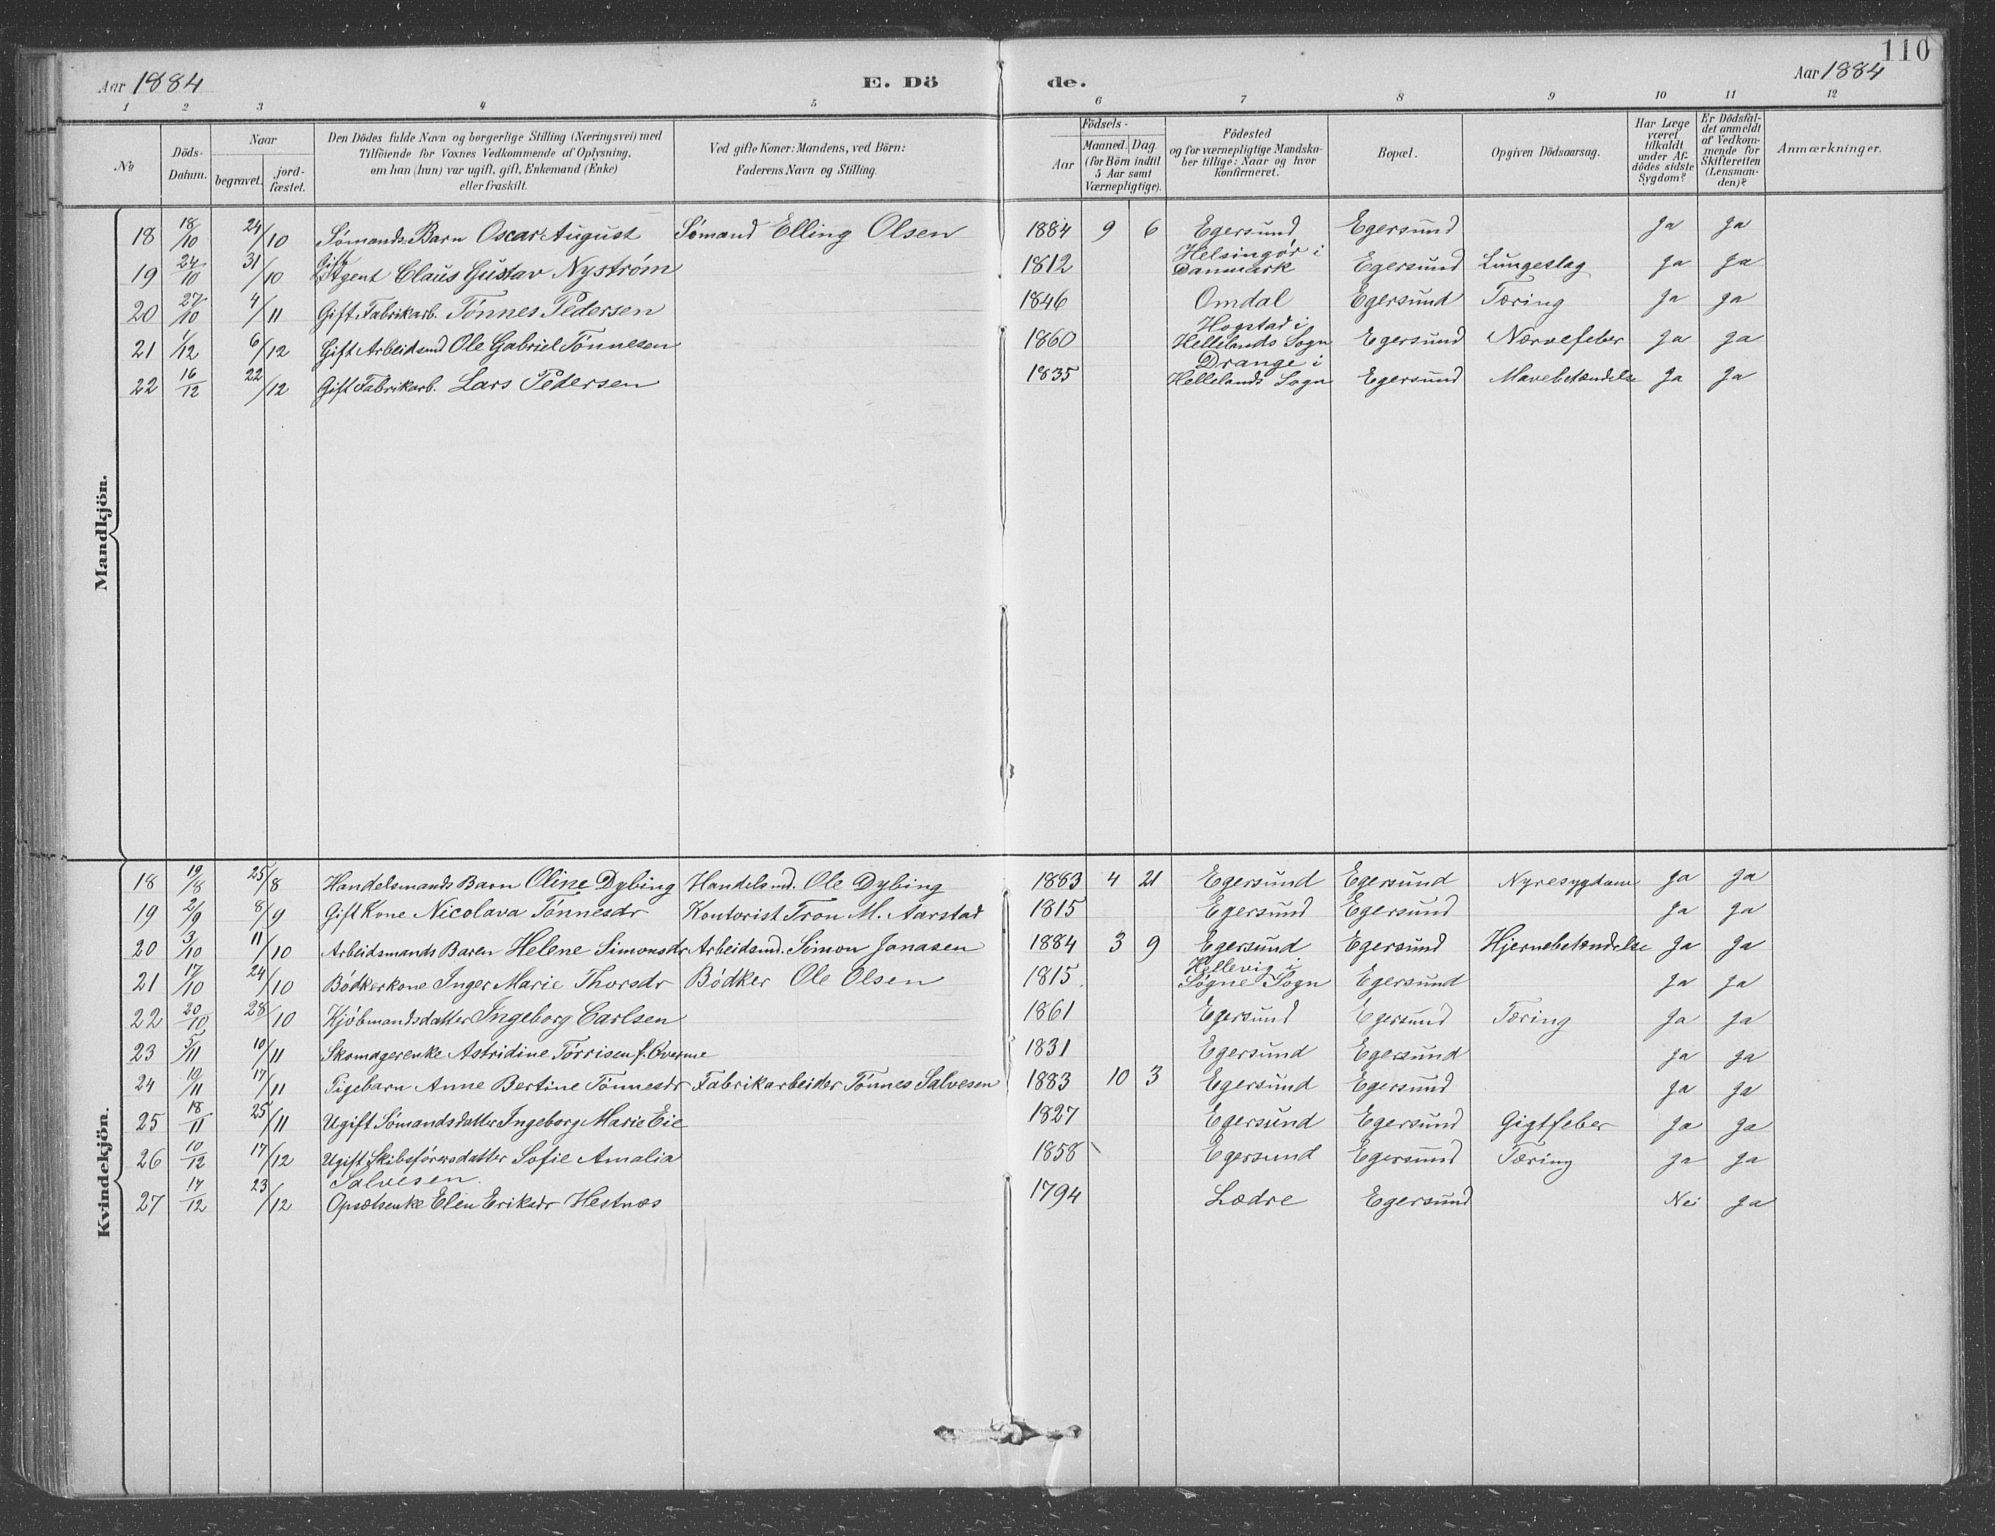 110
Aar 1884 E. Dö de. Aar 1884
1 2 3 4 5 6 7 8 9 10 11 12
№ Döds-Datum. Naar begravet. jord-fæstet. Den Dödes fulde Navn og borgerlige Stilling (Næringsvei) med Tilföiende for Voxnes Vedkommende af Oplysning, om han (hun) var ugift, gift, Enkemand (Enke) eller fraskilt. Ved gifte Koner: Mandens, ved Börn: Faderens Navn og Stilling. Födsels- Aar Maaned. Dag. (for Börn indtil 5 Aar samt Værnepligtige). Födested og for værnepligtige Mandskaber tillige: Naar og hvor konfirmeret. Bopæl. Opgiven Dödsaarsag. Har Læge været tilkaldt under Afdödes sidste Sygdom? Er Dödsfaldet anmeldt af Vedkommende for Skifteretten (Lensmanden)? Anmærkninger.
Mandkjön.
18 18/10 24/10 Sømands Barn Oscar August Sømand Elling Olsen 1884 9 6 Egersund Egersund Ja Ja
19 24/10 31/10 Gift Agent Claus Gustav Nystrøm 1812 Helsingør i Danmark Egersund Lungeslag Ja Ja
20 27/10 4/11 Gift Fabrikarb. Tønnes Pedersen 1846 Omdal Egersund Tæring Ja Ja
21 1/12 6/12 Gift Arbeidsmd Ole Gabriel Tønnesen 1860 Hogstad i Hellelands Sogn Egersund Nærvefeber Ja Ja
22 16/12 22/12 Gift Fabrikarb. Lars Pedersen 1835 Drange i Hellelands Sogn Egersund Mavebetændelse Ja Ja
Kvindekjön.
18 19/8 25/8 Handelsmands Barn Oline Dybing Handelsmd. Ole Dybing 1883 4 21 Egersund Egersund Nyresygdom Ja Ja
19 2/9 8/9 Gift Kone Nicolava Tønnesdr Kontorist Tron M. Aarstad 1815 Egersund Egersund Ja Ja
20 3/10 11/10 Arbeidsmands Baren Helene Simonsdr Arbeidsmd. Simon Janasen 1884 3 9 Egersund Egersund Hjernebetændelse Ja Ja
21 17/10 24/10 Bødkerkone Inger Marie Thorsdr Bødker Ole Olsen 1815 Hellevig i Søgne Sogn Egersund Ja Ja
22 20/10 28/10 Kjøbmandsdatter Ingeborg Carlsen 1861 Egersund Egersund Tæring Ja Ja
23 5/11 10/11 Skomagerenke Astridine Tørrisen f. 1831 Egersund Egersund Ja Ja
24 10/11 17/11 Pigebarn Anne Bertine Tønnesdr Fabrikarbeider Tønnes Salvesen 1883 10 3 Egersund Egersund Ja Ja
25 18/11 25/11 Ugift Sømandsdatter Ingeborg Marie Eie 1827 Egersund Egersund Gigtfeber Ja Ja
26 10/12 17/12 Ugift Skibsførersdatter Sofie Amalia Salvesen. 1858 Egersund Egersund Tæring Ja Ja
27 17/12 23/12 Opsætsenke Elen Eriksdr Hestnæs 1794 Lædre Egersund Nei Ja